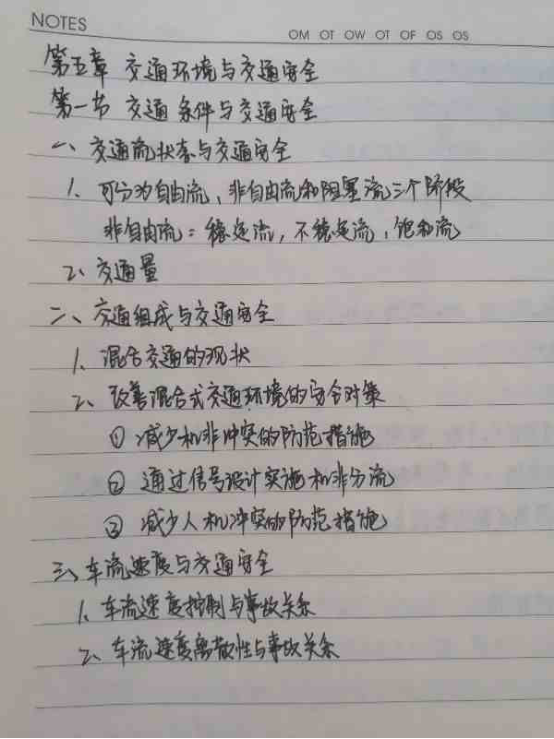 NOTES
OM OT OW OT OF OS OS
第五章 交通环境与交通安全
第一节 交通条件与交通安全
一、交通流状态与交通安全
1、可分为自由流，非自由流和阻塞流三个阶段
非自由流：稳定流，不稳定流，饱和流
2、交通量
二、交通组成与交通安全
1、混合交通的现状
2、改善混合式交通环境的安全对策
① 减少机非冲突的防范措施
② 通过信号设计实施机非分流
③ 减少人机冲突的防范措施
三、车流速度与交通安全
1、车流速度控制与事故关系
2、车流速度离散性与事故关系